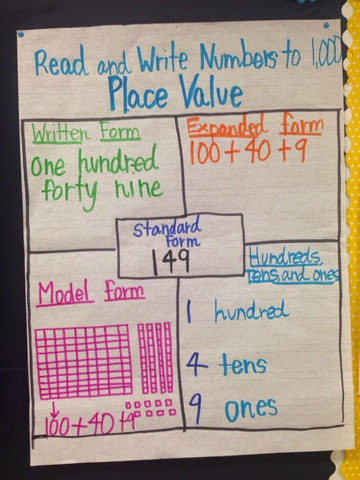 Read and Write Numbers to 1,000
Place Value
Written Form
one hundred
forty nine
Expanded form
100 + 40 + 9
Standard
Form
149
Model form
100 + 40 + 9
Hundreds,
tens, and ones
1 hundred
4 tens
9 ones